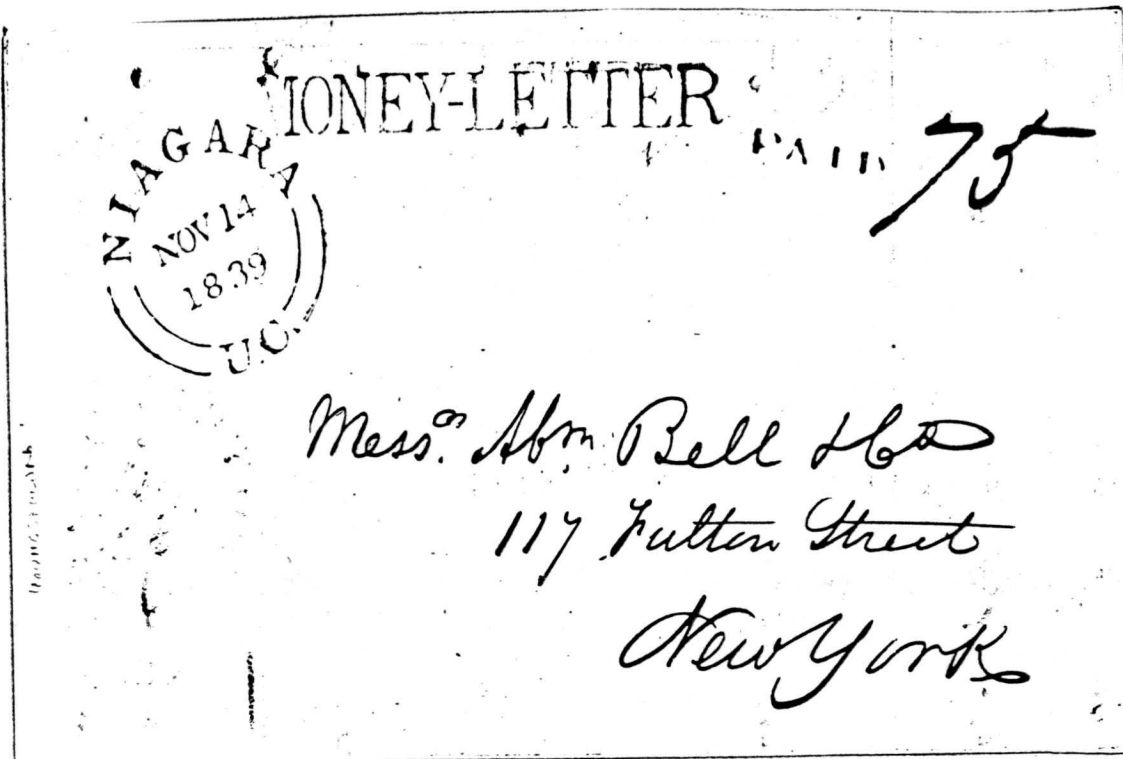 MONEY-LETTER
PAID 75
NIAGARA
NOV 14
1839
U.C.
Messrs. Abm Bell & Co
117 Fulton Street
New York